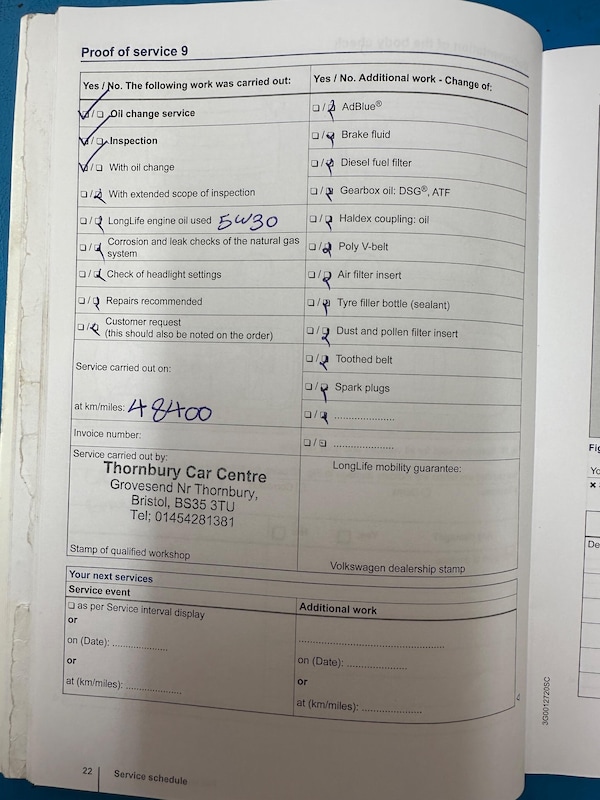 Proof of service 9
Yes / No. The following work was carried out:
☑/☐ Oil change service
☑/☐ Inspection
☑/☐ With oil change
☐/☑ With extended scope of inspection
☐/☑ LongLife engine oil used 5W30
☐/☑ Corrosion and leak checks of the natural gas
system
☐/☑ Check of headlight settings
☐/☑ Repairs recommended
☐/☑ Customer request
(this should also be noted on the order)
Service carried out on:
at km/miles: 48400
Invoice number:
Service carried out by:
Thornbury Car Centre
Grovesend Nr Thornbury,
Bristol, BS35 3TU
Tel; 01454281381
Stamp of qualified workshop
Yes / No. Additional work - Change of:
☐/☑ AdBlue®
☐/☑ Brake fluid
☐/☑ Diesel fuel filter
☐/☑ Gearbox oil: DSG®, ATF
☐/☑ Haldex coupling: oil
☐/☑ Poly V-belt
☐/☑ Air filter insert
☐/☑ Tyre filler bottle (sealant)
☐/☑ Dust and pollen filter insert
☐/☑ Toothed belt
☐/☑ Spark plugs
☐/☑ .....................
☐/☐ .....................
LongLife mobility guarantee:
Volkswagen dealership stamp
Your next services
Service event
☐ as per Service interval display
or
on (Date): ...................
or
at (km/miles): ...................
Additional work
..................................................
on (Date): .....................
or
at (km/miles): .....................
22
Service schedule
3G0012720SC
Fig
Yo
De